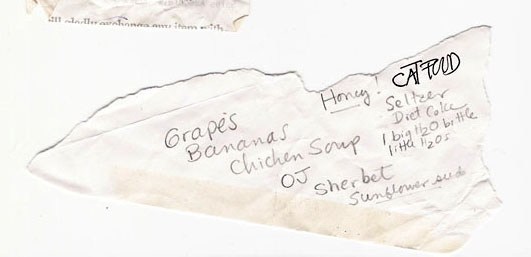 ill gladly exchange any item with
Honey!
CAT FOOD
Seltzer
Diet Coke
1 big H2O bottle
little H2Os
Grapes
Bananas
Chicken Soup
OJ
Sherbet
Sunflower seeds